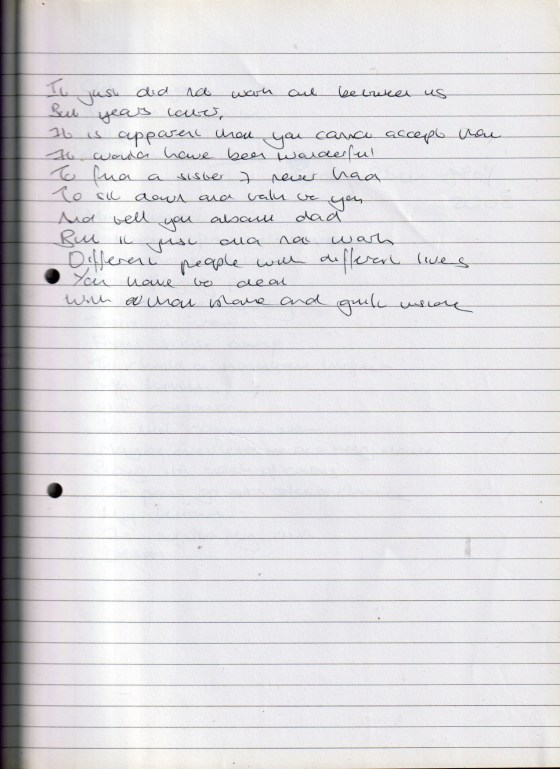 It just did not work out between us
But years later,
It is apparent that you cannot accept that
It would have been wonderful
To find a sister I never had
To sit down and talk to you
And tell you about dad
But it just did not work
Different people with different lives
You have to deal
With what blame and guilt inside